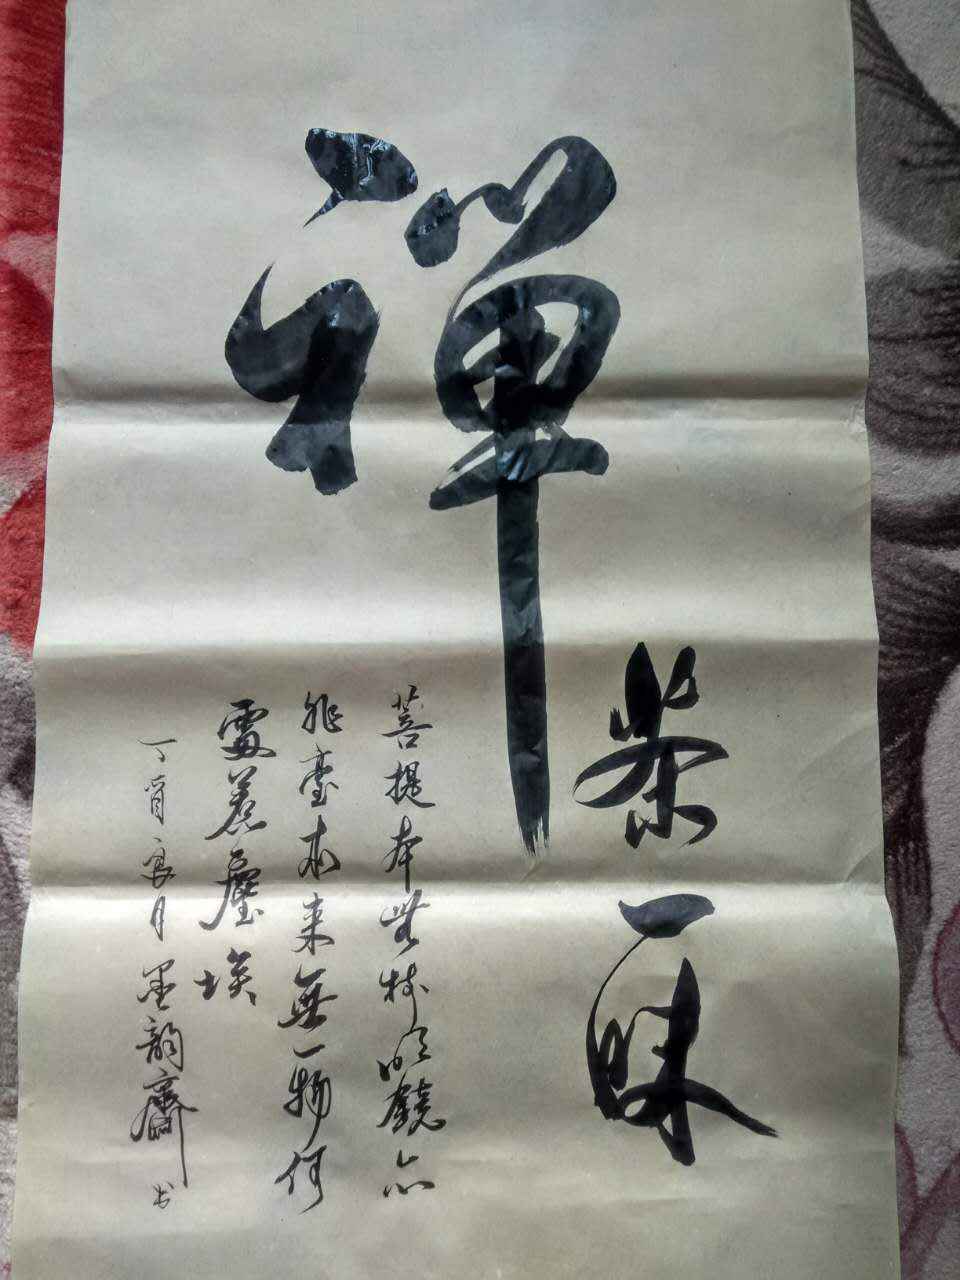 禪
茶一味
菩提本無树明鏡亦
非臺本来無一物何
處惹塵埃
丁酉夏月墨韵齋书